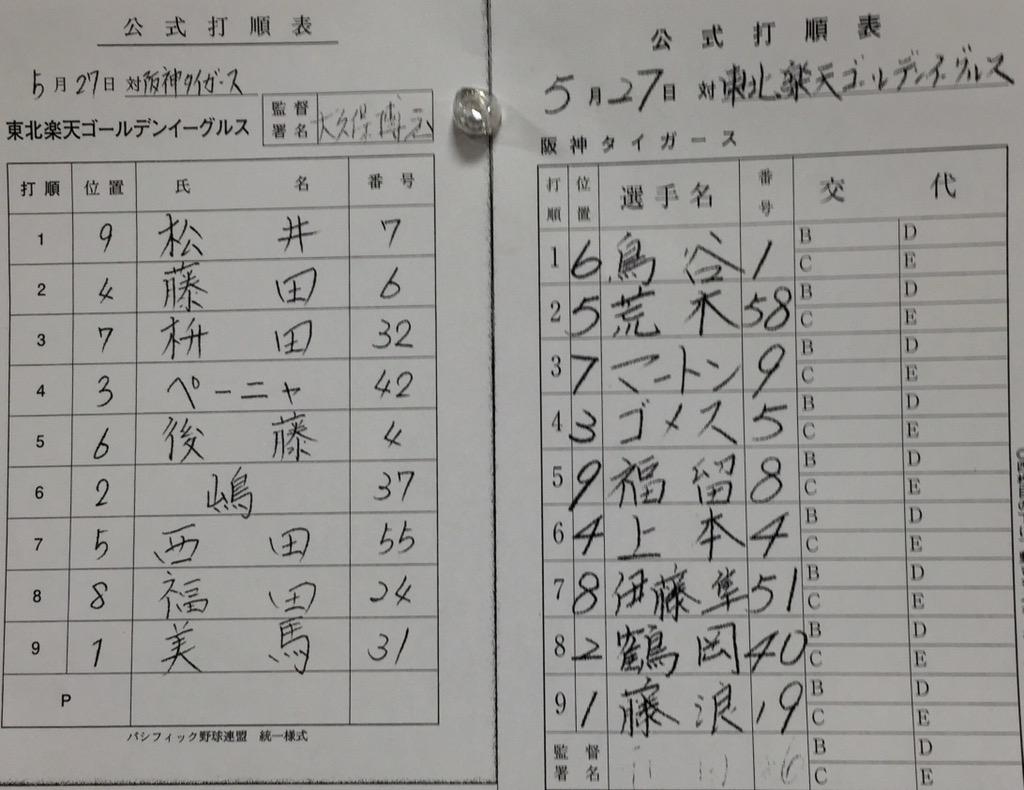 公式打順表
5月27日 対阪神タイガース
東北楽天ゴールデンイーグルス 監督署名 大久保博元
打順 位置 氏名 番号
1 9 松井 7
2 4 藤田 6
3 7 枡田 32
4 3 ペーニャ 42
5 6 後藤 4
6 2 嶋 37
7 5 西田 55
8 8 福田 24
9 1 美馬 31
P
パシフィック野球連盟 統一様式
公式打順表
5月27日 対東北楽天ゴールデンイーグルス
阪神タイガース
打順 位置 選手名 番号 交代
1 6 鳥谷 1 B D
C E
2 5 荒木 58 B D
C E
3 7 マートン 9 B D
C E
4 3 ゴメス 5 B D
C E
5 9 福留 8 B D
C E
6 4 上本 4 B D
C E
7 8 伊藤隼 51 B D
C E
8 2 鶴岡 40 B D
C E
9 1 藤浪 19 B D
C E
監督署名 B D
C E